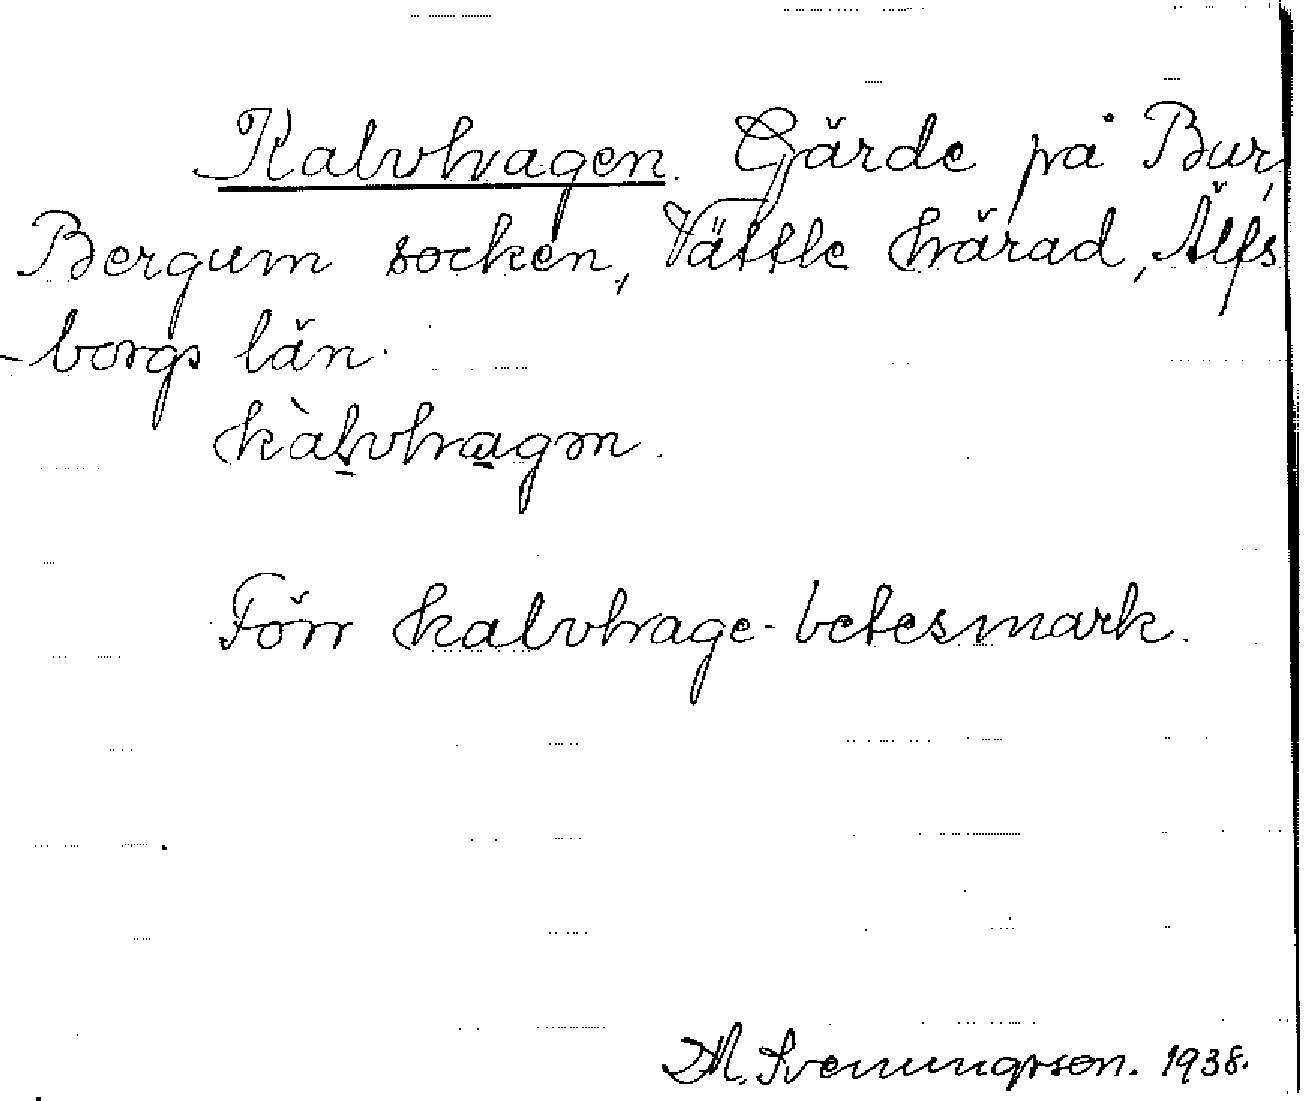 Kalvhagen. Gärde på Bur,
Bergum socken, Vättle härad, Älfs
-borgs län.
kàlvhagən.
Förr kalvhage-betesmark.
M. Svenungsson. 1938.